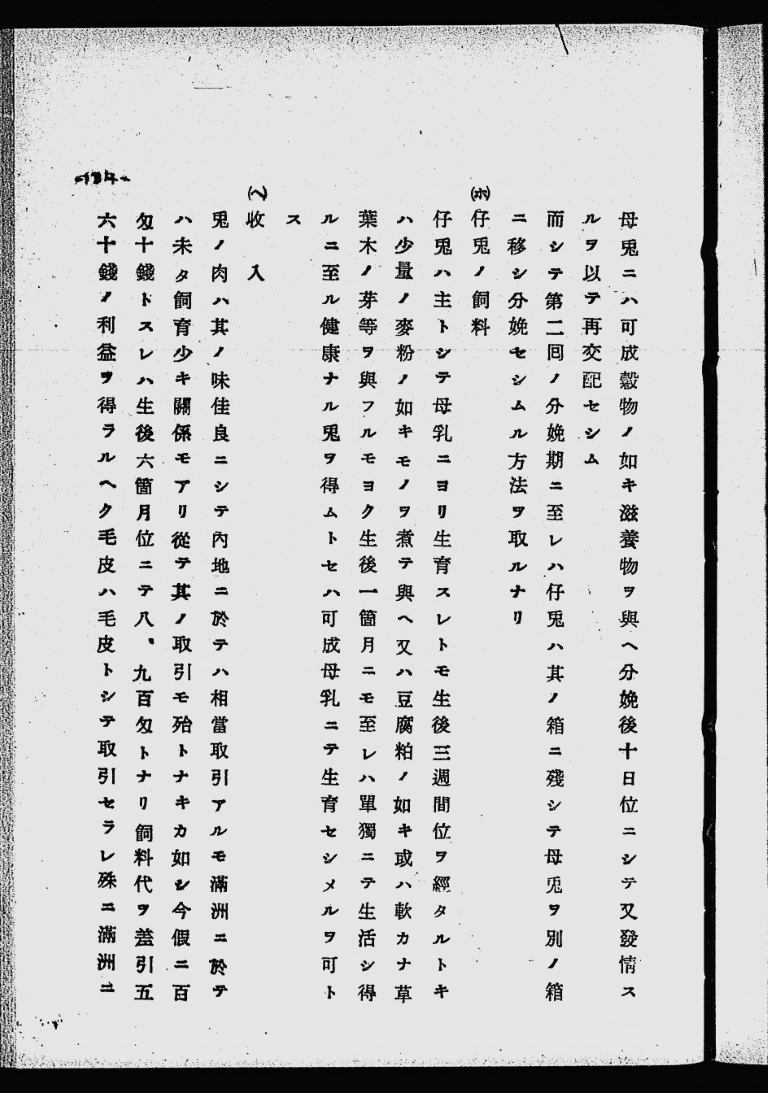 母兎ニハ可成穀物ノ如キ滋養物ヲ與ヘ分娩後十日位ニシテ又發情ス
ルヲ以テ再交配セシム
而シテ第二囘ノ分娩期ニ至レハ仔兎ハ其ノ箱ニ殘シテ母兎ヲ別ノ箱
ニ移シ分娩セシムル方法ヲ取ルナリ
㈭仔兎ノ飼料
仔兎ハ主トシテ母乳ニヨリ生育スレトモ生後三週間位ヲ經タルトキ
ハ少量ノ麥粉ノ如キモノヲ煮テ與ヘ又ハ豆腐粕ノ如キ或ハ軟カナ草
葉木ノ芽等ヲ與フルモヨク生後一箇月ニモ至レハ單獨ニテ生活シ得
ルニ至ル健康ナル兎ヲ得ムトセハ可成母乳ニテ生育セシメルヲ可ト
ス
(ヘ)收入
兎ノ肉ハ其ノ味佳良ニシテ內地ニ於テハ相當取引アルモ滿洲ニ於テ
ハ未タ飼育少キ關係モアリ從テ其ノ取引モ殆トナキカ如シ今假ニ百
匁十錢トスレハ生後六箇月位ニテ八、九百匁トナリ飼料代ヲ差引五
六十錢ノ利益ヲ得ラルヘク毛皮ハ毛皮トシテ取引セラレ殊ニ滿洲ニ